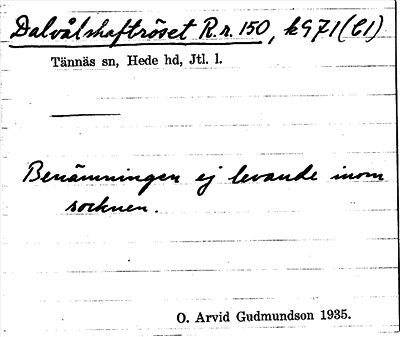 Dalvålshaftröset R.r. 150, k971(C1)
Tännäs sn, Hede hd, Jtl. l.
Benämningen ej levande inom
socknen.
O. Arvid Gudmundson 1935.